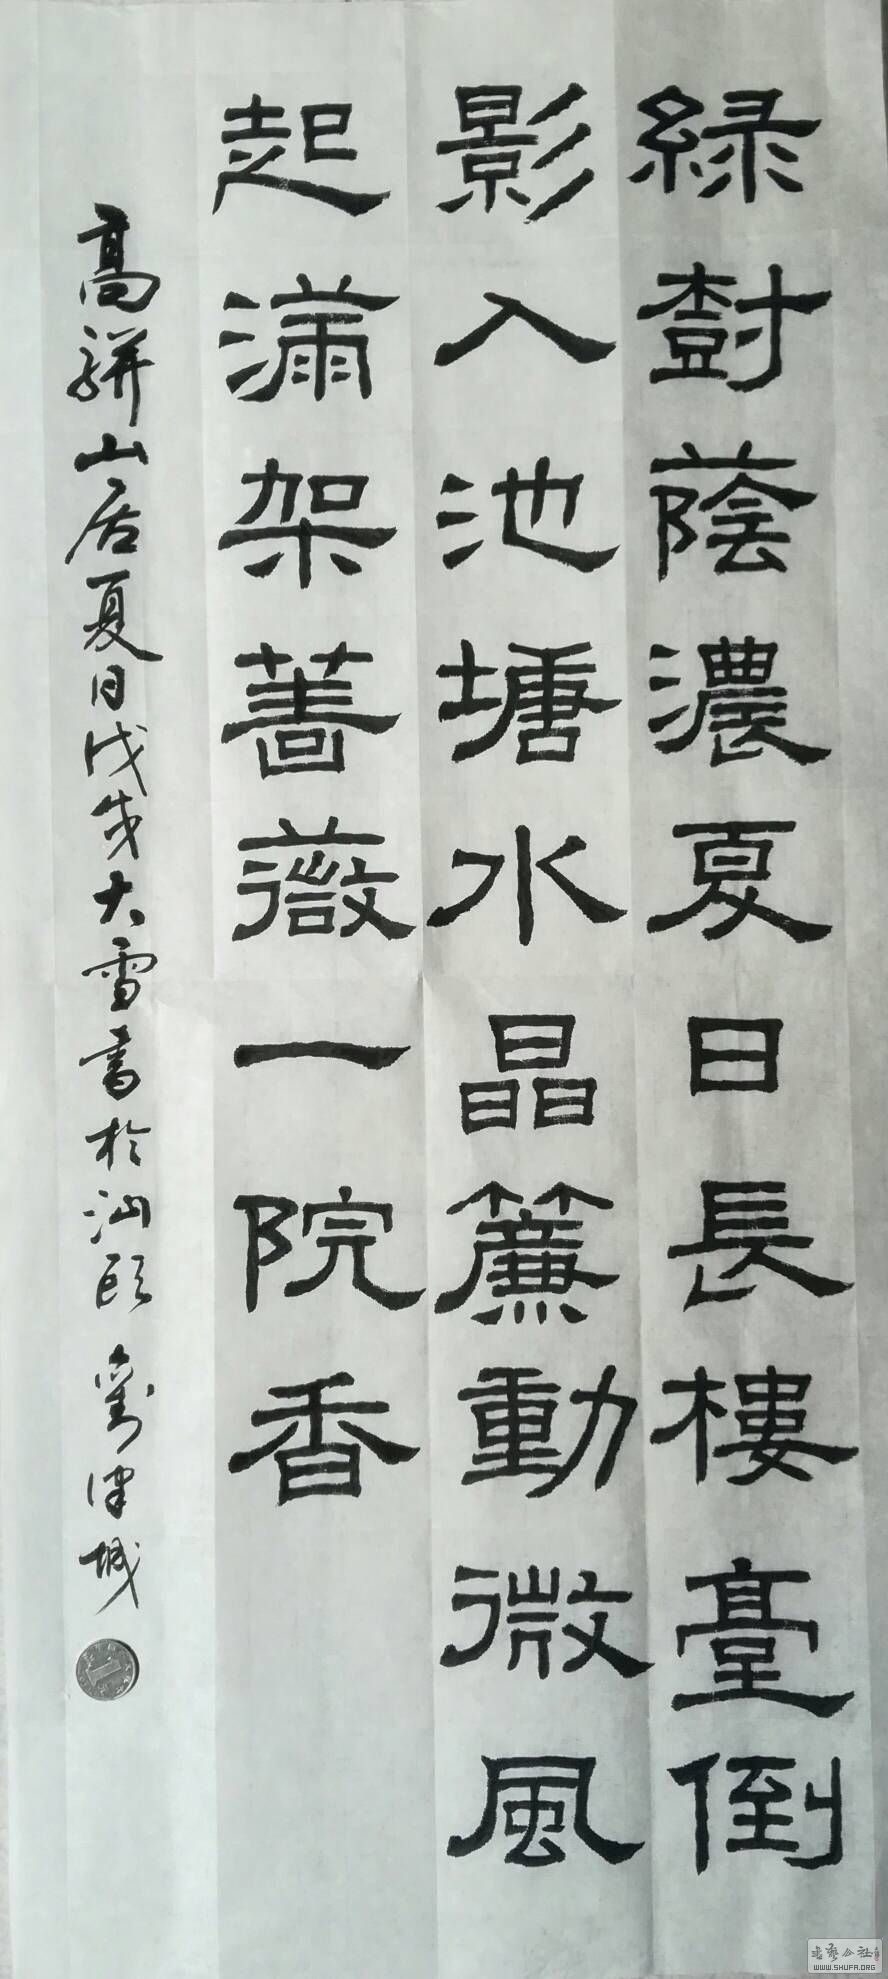 緑樹蔭濃夏日長樓臺倒
影入池塘水晶簾動微風
起滿架薔薇一院香
高駢山居夏日戊戌大雪書於汕頭 劉津城
書藝公社
WWW.SHUFA.ORG